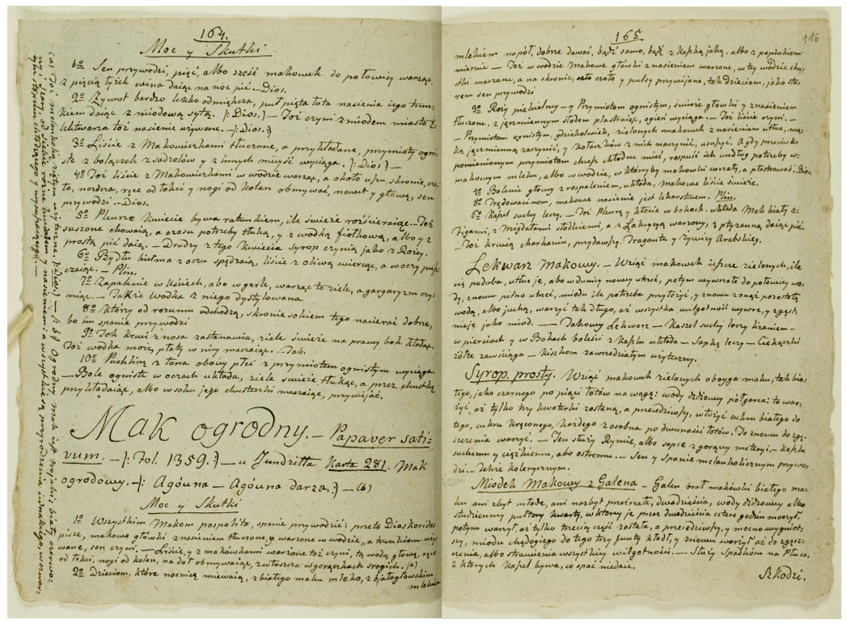 164.
Moc y Skutki
1º Sen przywodzi, pięć, albo sześć makowek do połowicy warząc,
z pięcią łyżek wina dając na noc pić. Dios.
2º Żywot bardzo lekko odmiękcza, puł pięta łota nasienia jego trun-
kiem dając z miodową sytą. /: Dios.) — Toż czyni z miodem miasto
Lektwarza toż nasienie używane. — /: Dios.)
3º Liście z Makowkami tłuczone, a przykładane, przymioty ogni-
ste z bolączch z sadzelow y z innych mieysc wyciąga. /: Dios.) —
4º Toż liście z Makowkami w wodzie warząc, a około uszu, skronie, czo-
ło, nozdrza, ręce od łokci y nogi od kolan obmywać, nawet y głowę, sen
przywodzi. — Dios.
5º Pleurze kwiecie bywa ratunkiem, ile świeże rozścieraiąc. — Toż
suszone chowaią, a czasu potrzeby tłuką, y z wodką fiołkową, albo y z
prostą pić daią. — Drudzy z tego kwiecia Syrop czynią jako z Roży.
6º Bydłu bielma z oczu spędzaią, liście z oliwą wiercąc, a w oczy pusz-
czaiąc. — Plin.
7º Zapalenie w Uściech, albo w garle, warząc to ziele, a gargaryzm czy-
niąc. — Także Wodka z niego dystylowana
8º Ktory od rozumu odchodzą, skronie sokiem tego nacierać dobre,
bo im spanie przywodzi
9º Tok krwi z nosa zastanawia, ziele świeże na prawy bok kładąc.
Toż wodka może, płaty w niey maczaiąc. Tab.
10º Puchlinę z łona obowy płci z przymiotem ognistym wyciąga.
— Bole ogniste w oczach układa, ziele świeże tłukąc, a przez chustkę
przykładaiąc, albo w soku jego chusteczki maczaiąc, przywijać.
Mak ogrodny. — Papaver sati-
vum. — /: Fol. 1359. /) — u Jundziłła Karta 281. Mak
ogrodowy. — /: Agóuna — Agóuna darza. /) — (b)
Moc y Skutki
1º Wszystkim Makom pospolita, spanie przywodzić: przeto Dioskorides
pisze, makowe głowki z nasieniem tłuczone, y warzone w wodzie, a trunkiem uży-
wane, sen czyni. — Liście, y z makowkami warzone toż czyni, tą wodą głowę, ręce
od łokci, nogi od kolan, na doł obmywaiąc, zwłaszcza w gorączkach srogich. (a)
2º Dzieciom, ktore nocnicę miewaią, z białego maku mleko, z białogłowskim
mlekiem
165.
116
mlekiem napoł, dobre dawać, bądź samo, bądź z kaszką jaką, albo z papinkiem
miernie — Też w wodzie makowe głowki z nasieniem warzone, w tey wodzie chu-
stki maczane, a na skronie, czoło y pulsy przywijane, tak dzieciom, jako sta-
rem sen przywodzi
3º Roży piekielney — y Przymiotom ognistym, świeże głowki z nasieniem
tłuczone, z jęczmiennym słodem plastruiąc, ogień wyciąga. — Toż liście czyni. —
Przymiotom ognistym, zielonych makowek z nasieniem utłuc, mą-
ką jęczmienną zaczynić, y Kołaczkow z nich naczynić, ususzyć. A gdy przeciwko
pomienionym przymiotom chcesz chłodne mieć, rospuść ich według potrzeby w
makowym mleku, albo w wodzie, w ktoreyby makowki wrzały, a plastrować. Dios.
4º Bolenie głowy z rospalenien, układa, makowe liście świeże.
5º Trędowaciznom, makowe nasienie jest lekarstwem. Plin.
6º Kaszel suchy leczy. — Toż Pleurę y kłócie w bokach, układa Mak biały z
Figami, z Migdałami słodkiemi, a z Lakrycyą warzony, z ptyzanną dając pić.
— Toż krwią charkanie, przydawszy Traganku y żywicy Arabskiey.
Lekwarz Makowy. — Wziąć makowek jeszcze zielonych, ile
się podoba, utłuc je, albo w dunicy nowey utrzeć, potym wywrzało do połowicy wo-
dy, znowu pilno utrzeć, miodu ile potrzeba przyłożyć, y znowu z onąż pozostałą
wodą, albo juchą, warzyć tak długo, aż wszystka wilgotność wywre, y zgęst-
nieje jako miod. — Takowy Lekwarz — Kaszel suchy leczy
w piersiach y w Bokach boleści z kaszlu układa — Sapkę leczy — Ciekączki
żołte zawsciąga — kiszkom zawrzedziałym użyteczny.
Syrop. prosty. Wziąć makowek zielonych oboyga maku, tak bia-
łego, jako czarnego po pięci łotow na wagę: wody dżdżowey połgarca: to wa-
rzyć, aż tylko trzy kwaterki zostaną, a przecedziwszy, włożyć cukru białego do
tego, cukru każdego z osobna po dwunaści łotow. To znowu do zgę-
szczenia warzyć. — Ten służy Rymie, albo sapce z gorącey materyi. — Kaszlu
suchemu y ciężkiemu, albo ostremu. — Sen y Spanie melankolicznym przywo-
dzi. Także kolerycznym.
Miodek Makowy z Galena — Galen brał makówki białego ma-
ku ani zbyt młode, ani nazbyt przeźrałe, dwadzieścia, wody dżdżowey albo
studzienney połtory kwarty, w ktorey je przez dwadzieścia cztery godzin moczył:
potym warzył aż tylko trzecią część zostało, a przecedziwszy, y mocno wygniot-
szy, miodu chędogiego do tego trzy funty kładł, y znowu warzył aż do zgęsz-
czenia, albo strawienia wszystkiey wilgotności. — Służy Spadkom na Płuca,
z ktorych kaszel bywa, co spać niedaie.
Szkodzi.